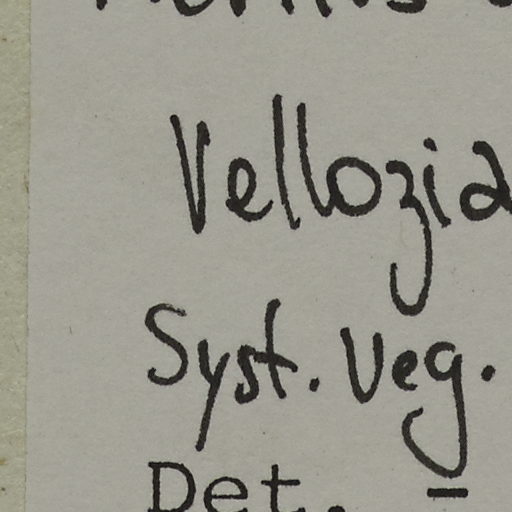 Vellozia
Syst. Veg.
Det. -